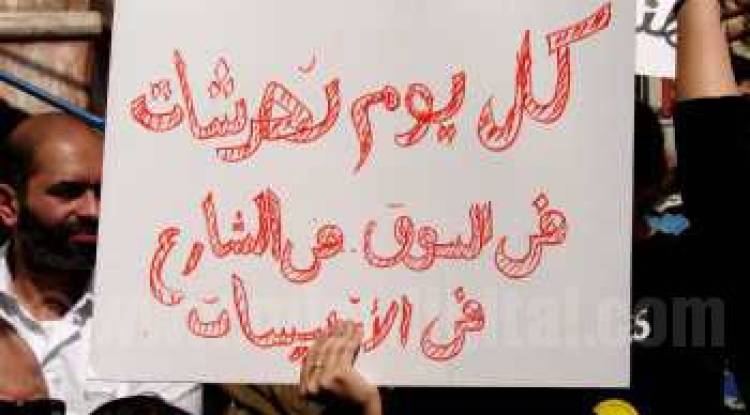 كل يوم تحرشات
في السوق في الشارع
في الأتوبيسات